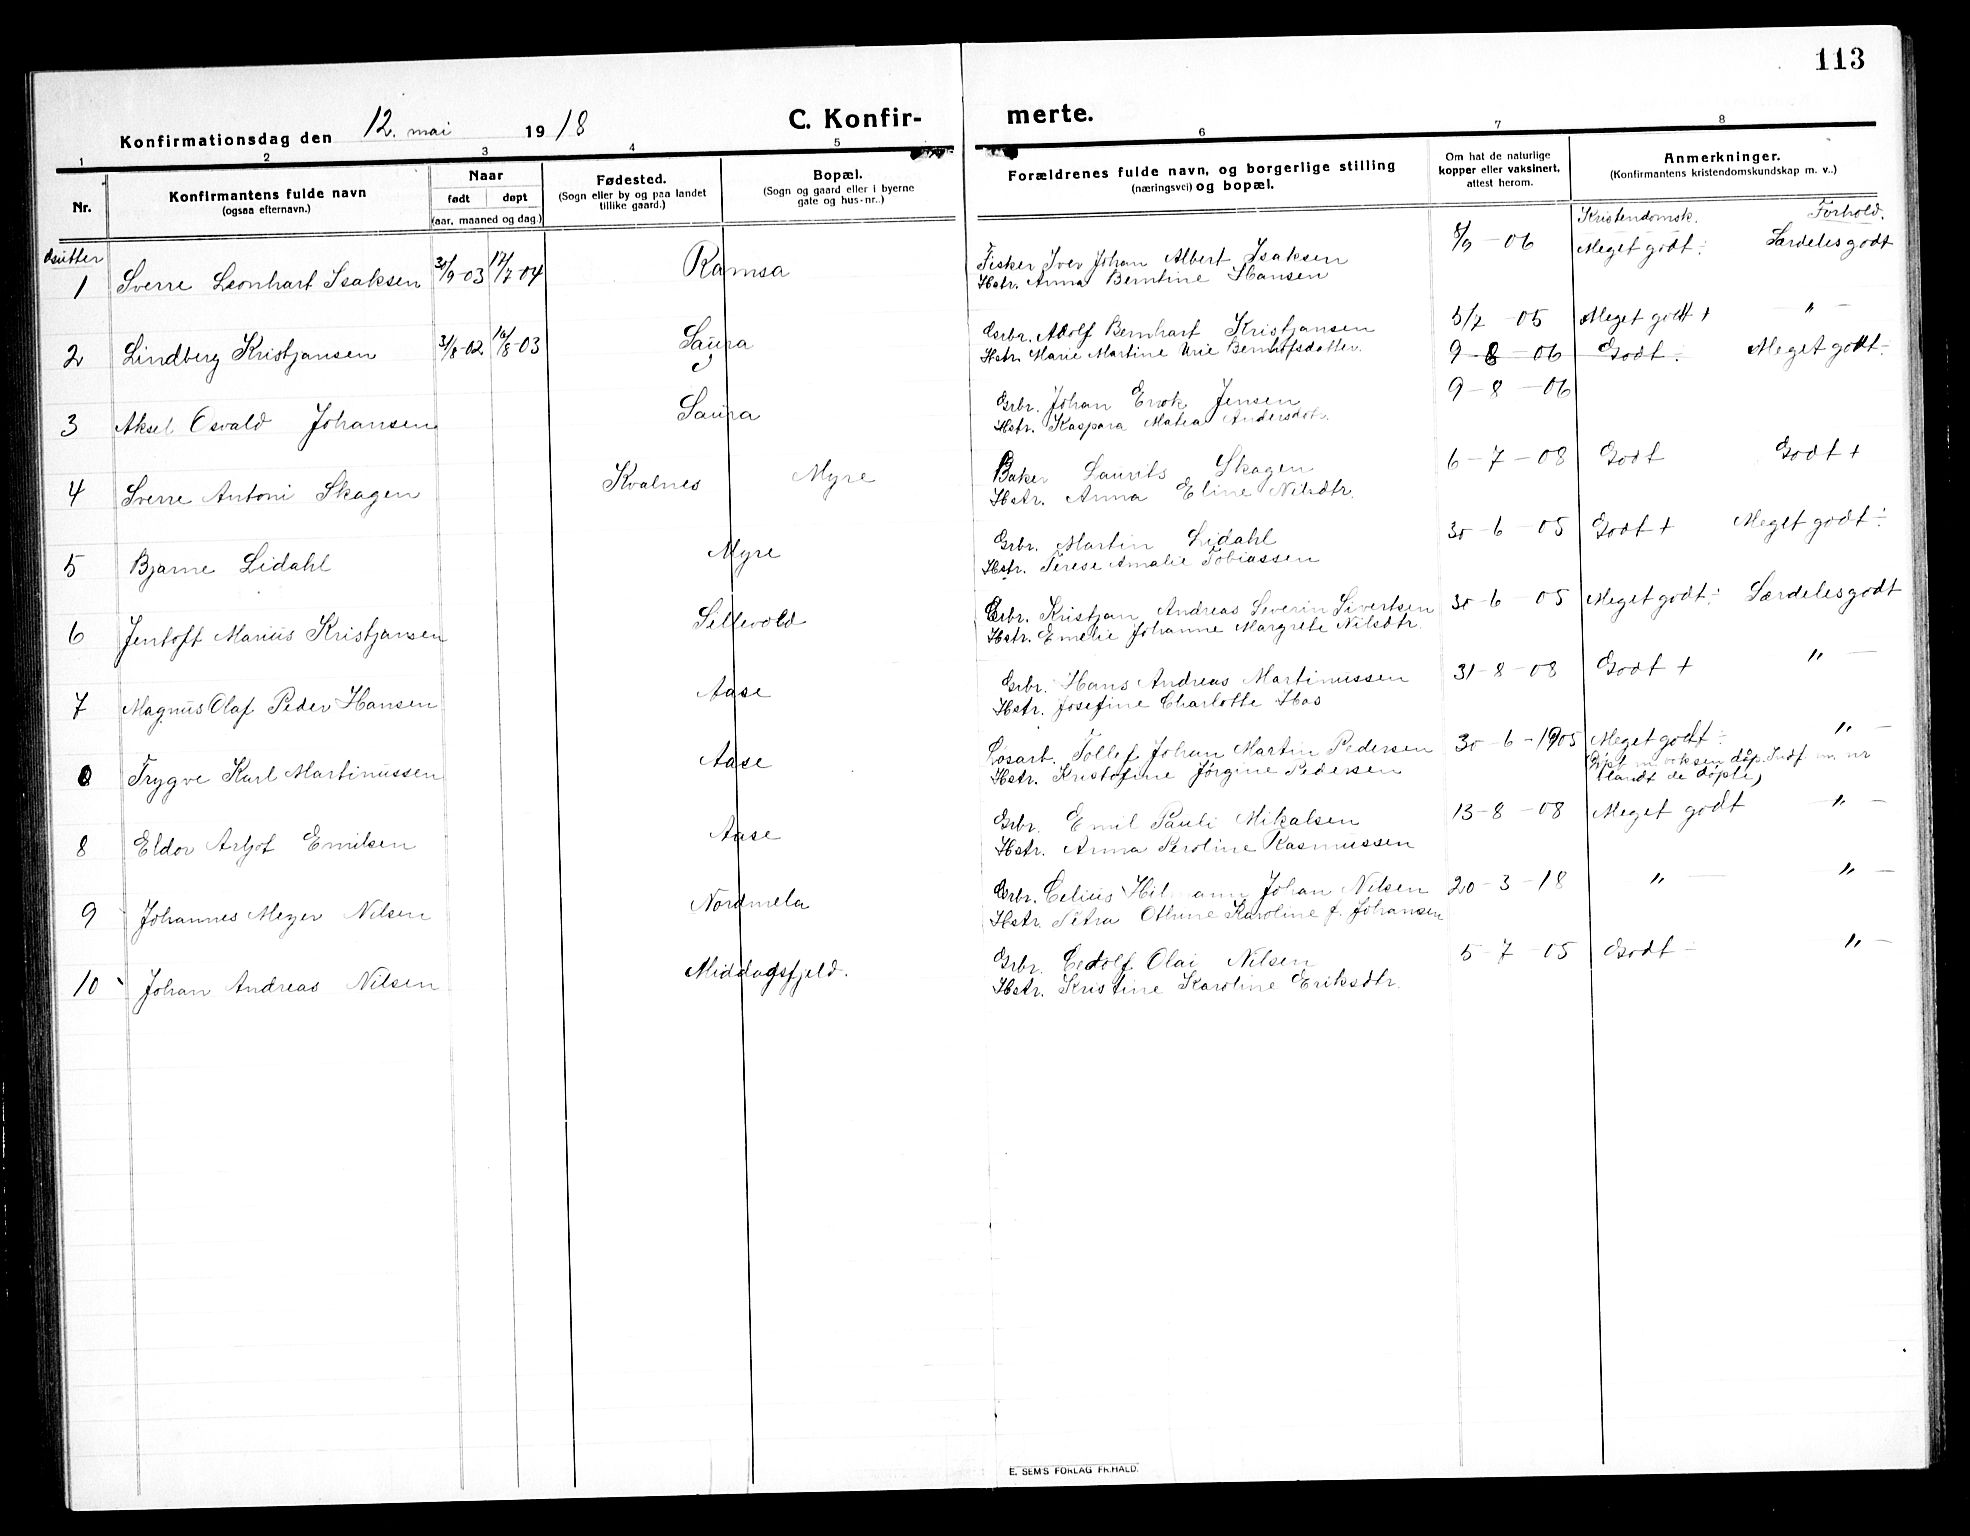 113
Konfirmationsdag den 12. mai 1918 C. Konfirmerte.
1 2 3 4 5 6 7 8
Nr. Konfirmantens fulde navn (ogsaa efternavn.) Naar født døpt (aar, maaned og dag.) Fødested. (Sogn eller by og paa landet tillike gaard.) Bopæl. (Sogn og gaard eller i byerne gate og hus-nr..) Forældrenes fulde navn, og borgerlige stilling (næringsvei) og bopæl. Om hat de naturlige kopper eller vaksinert, attest herom. Anmerkninger. (Konfirmantens kristendomskundskap m. v..)
Kristendomsk. Forhold.
Gutter
1 Sverre Leonhart Isaksen 30/9-03 17/7-04 Ramsa Fisker Iver Johan Albert Isaksen 8/9 - 06 Meget godt ÷ Særdeles godt
Hstr. Anna Berntine Hansen
2 Lindberg Kristjansen 31/8-02 10/8-03 Saura Grbr. Adolf Bernhart Kristjansen 5/7 - 05 Meget godt + " -
Hstr. Marie Martine Urie Bernhofsdatter. 9-8-06 Godt ÷ Meget godt ÷
3 Aksel Osvald Johansen Saura Grbr. Johan Enok Jensen 9-8-06
Hstr. Kaspara Matea Andersdtr.
4 Sverre Antoni Skagen Kvalnes Myre Baker Laurits Skagen 6-7-08 Godt Godt +
Hstr. Anna Eline Nilsdtr.
5 Bjarne Lidahl Myre Grbr. Martin Lidahl 30-6-05 Godt + Meget godt ÷
Hstr. Terese Amalie Tobiassen
6 Jentoft Marius Kristjansen Sellevold Grbr. Kristjan Andreas Severin Sivertsen 30-6-05 Meget godt ÷ Særdeles godt
Hstr. Emelie Johanne Margrete Nilsdtr.
7 Magnus Olaf Peder Hansen Aase Grbr. Hans Andreas Martinussen 31-8-08 Godt + " -
Hstr. Josefine Charlotte Has
8 Trygve Karl Martinussen Aase Løsarb. Tollef Johan Martin Pedersen 30-6-1905 Meget godt ÷ " -
Hstr. Kristofine Jørgine Pedersen (Døpt m voksen dåp. Indf. m. nr
blandt de døpte)
8 Eldor Arljot Emilsen Aase Grbr. Emil Pauli Mikalsen 13-8-08 Meget godt " -
Hstr. Anna Peroline Rasmussen
9 Johannes Meyer Nilsen Nordmela Grbr. Celius Hilmann Johan Nilsen 20-3-18 " - " -
Hstr. Petra Othine Karoline f. Johansen
10 Johan Andreas Nilsen Middagsfjeld. Grbr. Edolf Olai Nilsen 5-7-05 Godt - " -
Hstr. Kristine Karoline Eriksdtr.
E. SEMS FORLAG FR.HALD.